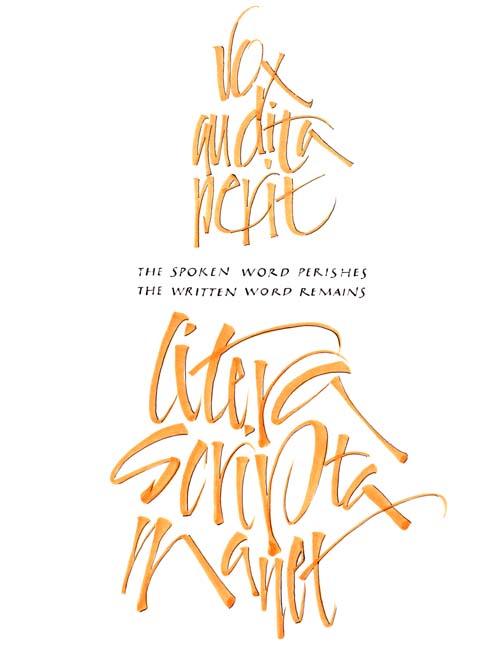 vox
audita
perit
THE SPOKEN WORD PERISHES
THE WRITTEN WORD REMAINS
litera
scripta
manet